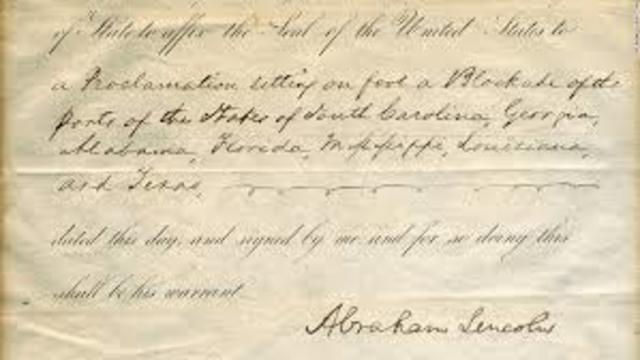 of State to affix the Seal of the United States to
a Proclamation setting on foot a Blockade of the
Ports of the States of South Carolina, Georgia,
Alabama, Florida, Mississippi, Louisiana,
and Texas,
dated this day, and signed by me and for so doing this
shall be his warrant.
Abraham Lincoln